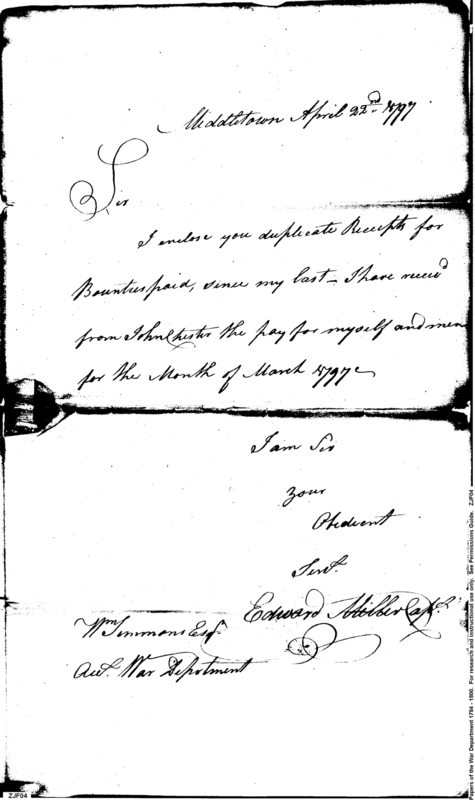 Middletown April 22nd 1797
Sir
I enclose you duplicate Receipts for
Bounties paid, since my last – I have receivd
from John Chester the pay for myself and men
for the Month of March 1797
I am Sir
your
Obedient
Servt.
Edward Miller Capt.
Wm Simmons Esqr.
Acct. War Depertment
ZJF04
Papers of the War Department 1784 - 1800. For research and instructional use only. See Permissions Guide. ZJF04